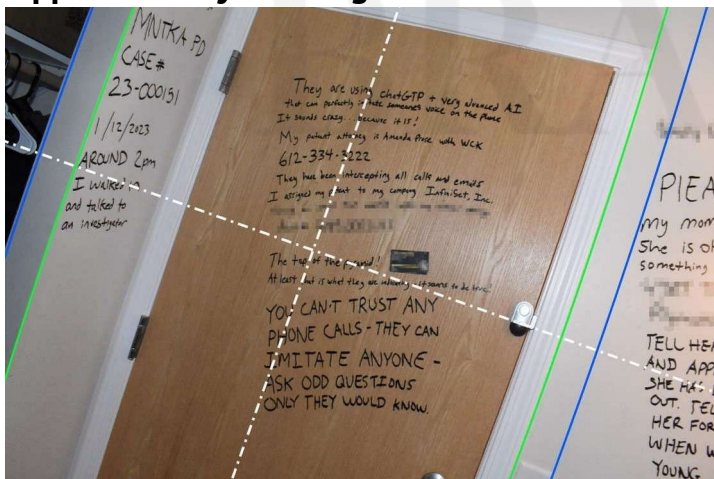 MNTKA PD
CASE#
23-000151
1/12/2023
AROUND 2pm
I walked in
and talked to
an investigator
They are using chatGTP + very advanced AI
that can perfectly imitate someone's voice on the phone
It sounds crazy... because it is!
My patent attorney is Amanda Prose with WCK
612-334-3222
They have been intercepting all calls and emails
I assigned my patent to my company InfiniSet, Inc.
The top of the pyramid!
At least that is what they are indicating - it seems to be true.
YOU CAN'T TRUST ANY
PHONE CALLS - THEY CAN
IMITATE ANYONE -
ASK ODD QUESTIONS
ONLY THEY WOULD KNOW.
my mom
She is
something
TELL HER
AND
SHE HAS
OUT. TELL
HER FOR
WHEN
YOUNG